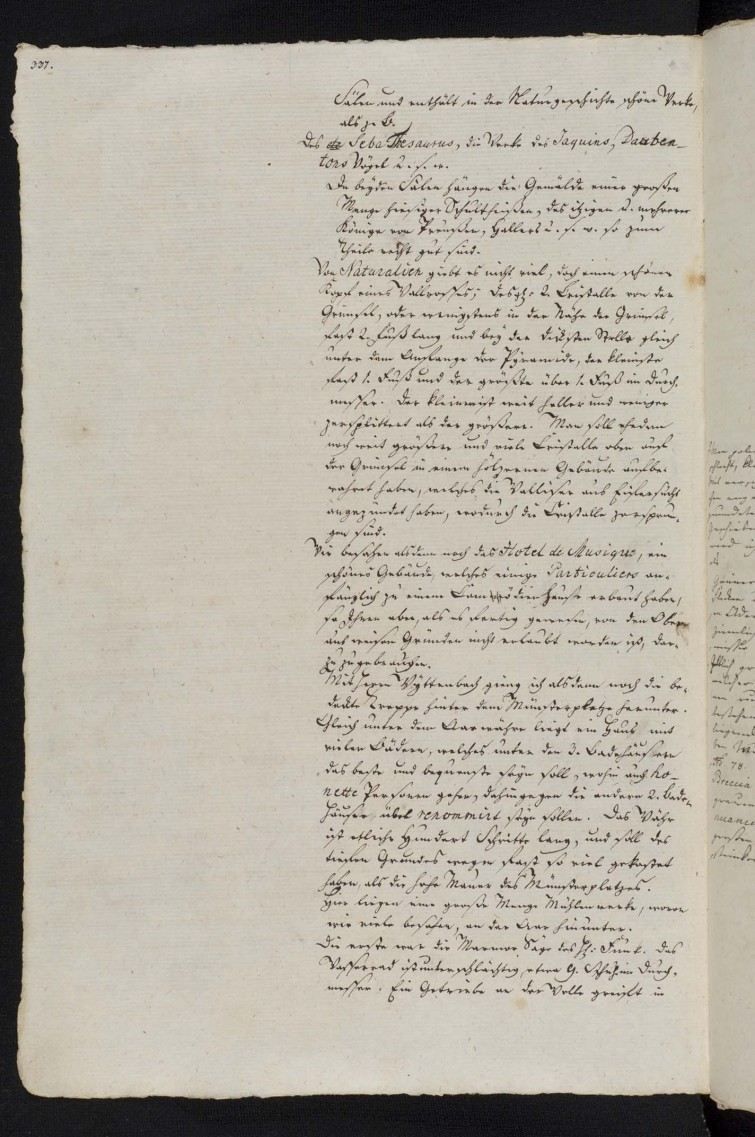 337.
Sälen und enthält in der Naturgeschichte schöne Werke,
als z. B.
Des de Seba Thesaurus, die Werke des Jaquins, Dauben-
tons Vögel u. s. w.
In beyden Sälen hängen die Gemälde einer großen
Menge hiesiger Schultheißen, des itzigen u. mehrerer
Könige von Preußen, Hallers u. s. w. so zum
Theile recht gut sind.
Von Naturalien giebt es nicht viel, doch einen schönen
Kopf eines Wallrosses; desgl: 2. Cristalle von der
Grimsel, oder wenigstens in der Nähe der Grimsel,
fast 2. Fuß lang und bey der dicksten Stelle gleich
unter dem Anfange der Pyramide, der kleinste
fast 1. Fuß und der größte über 1. Fuß im Durch-
messer. Der kleinere ist weit heller und weniger
zersplittert als der größere. Man soll ehedem
noch weit größere und viele Cristalle oben auf
der Grimsel in einem hölzernen Gebäude aufbe-
wahret haben, welches die Walliser aus Eifersucht
angezündet haben, wodurch die Cristalle zersprun-
gen sind.
Wir besahen alsdenn noch das Hotel de Musique, ein
schönes Gebäude, welches einige Particuliers an-
fänglich zu einem Comödienhause erbaut haben,
so Ihnen aber, als es fertig gewesen, von den Obern
aus weisen Gründen nicht erlaubt worden ist, da-
zu zu gebrauchen.
Mit Herrn Wyttenbach gieng ich alsdenn noch die be-
deckte Treppe hinter dem Münsterplatze herunter.
Gleich unter dem Aarwähre liegt ein Haus mit
vielen Bädern, welches unter den 3. Badehäusern
das beste und bequemste seyn soll, wohin auch ho-
nette Personen gehen, dahingegen die andern 2. Bade-
häuser übel renommirt seyn sollen. Das Währ
ist etliche Hundert Schritte lang, und soll des
tiefen Grundes wegen fast so viel gekostet
haben, als die hohe Mauer des Münsterplatzes.
Hier liegen eine große Menge Mühlenwerke, wovon
wir viele besahen, an der Aar hinunter.
Die erste war die Marmor Säge des H: Funk. Das
Wasserrad ist unterschlächtig, etwa 9. Schuh im Durch-
messer. Ein Getriebe an der Welle greift in